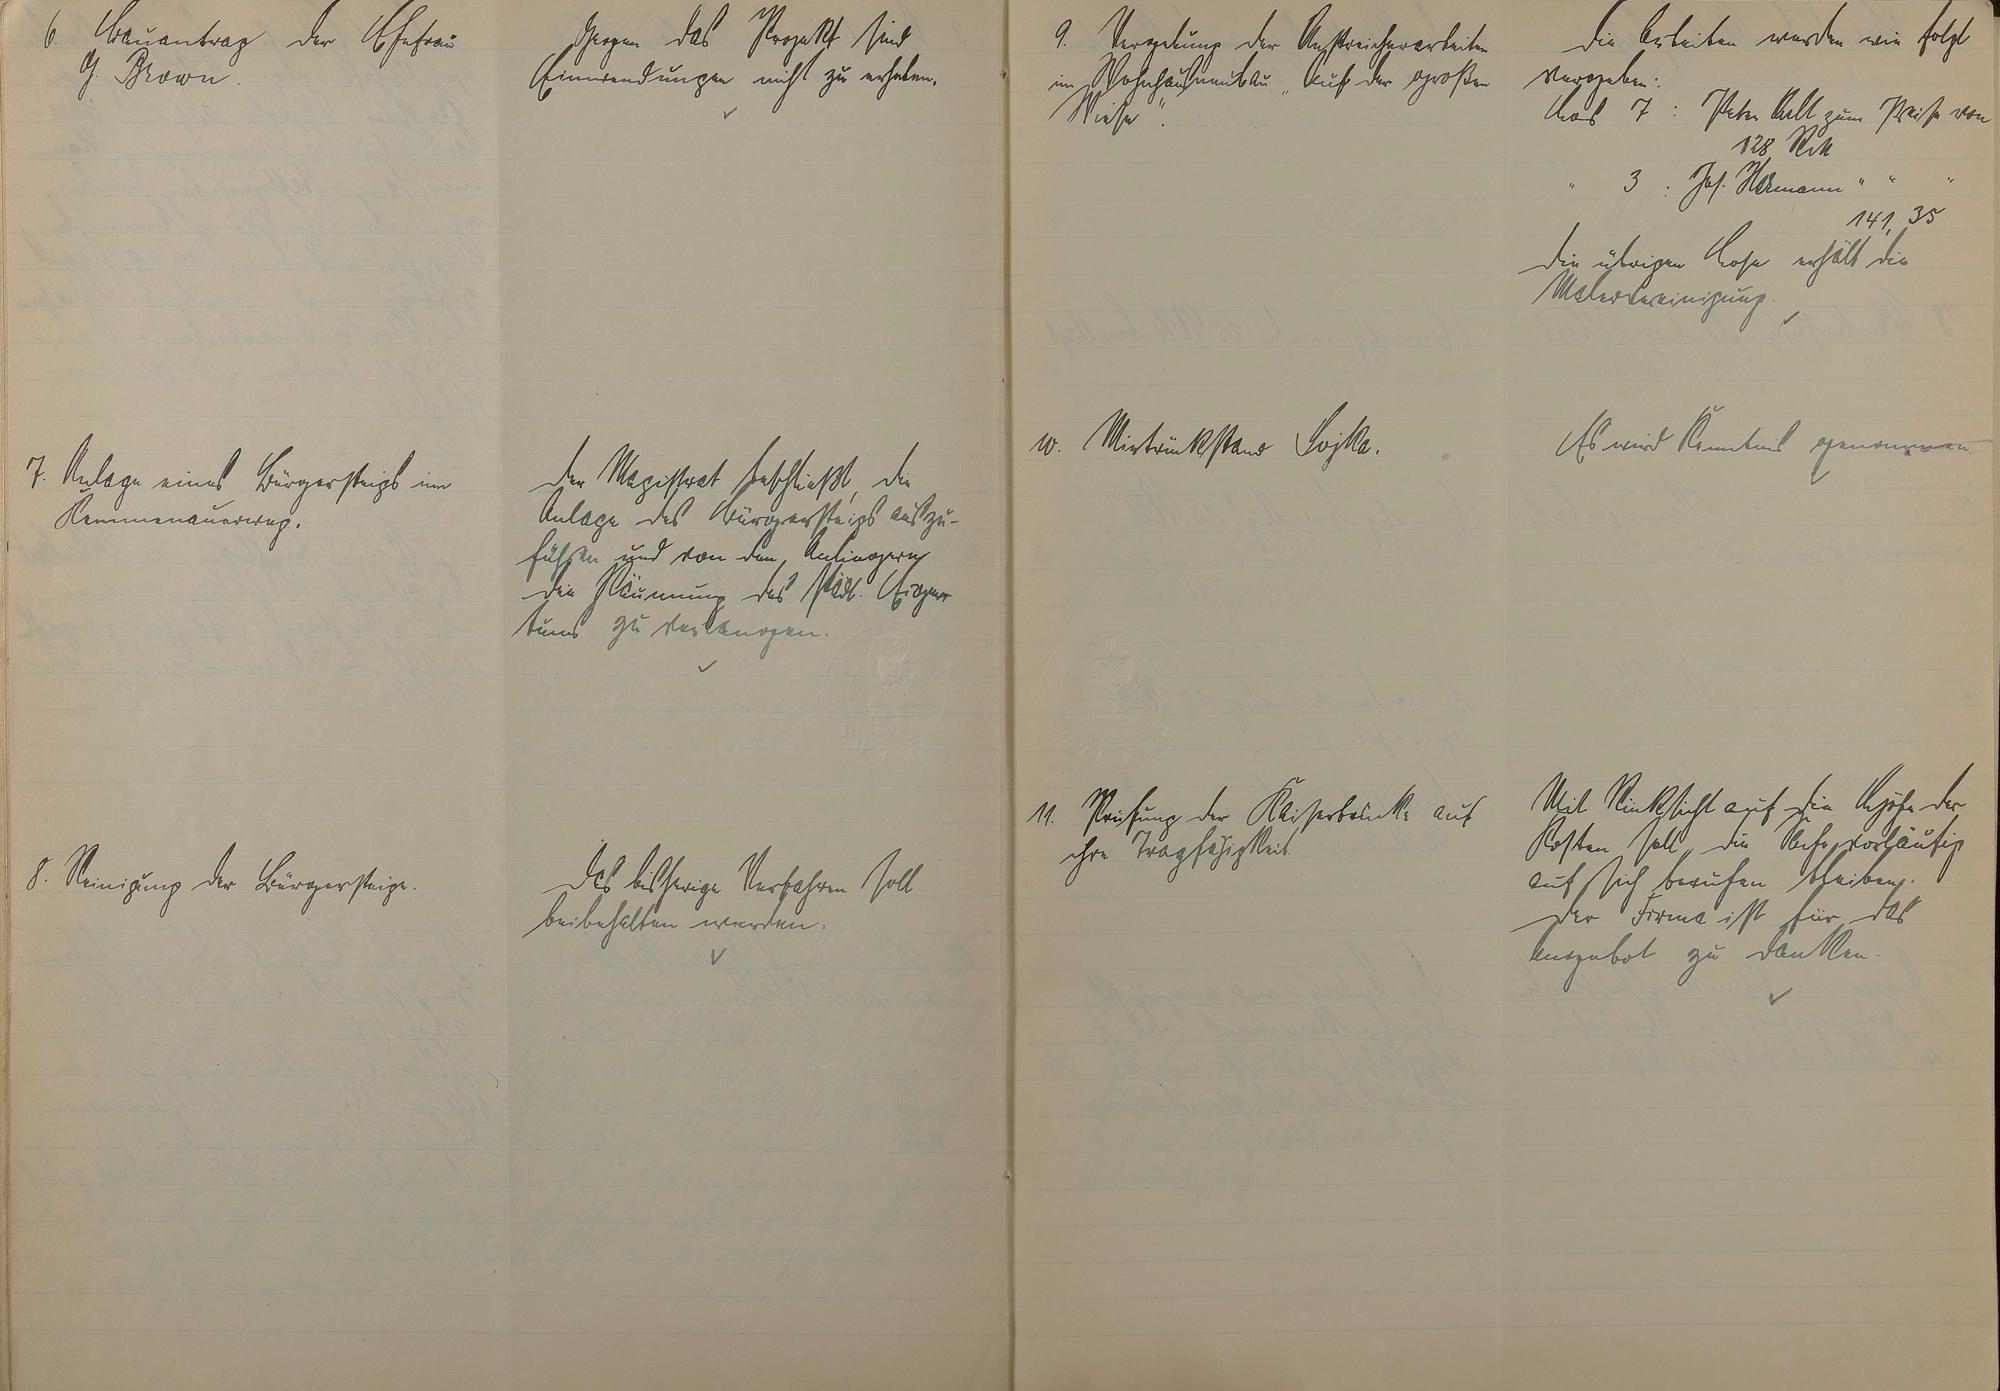 6. Bauantrag der Ehefrau
G. Brown.
Gegen das Projekt sind
Einwendungen nicht zu erheben.
7. Anlage eines Bürgersteigs im
Kemmenauerweg.
Der Magistrat beschließt, die
Anlage des Bürgersteigs auszu-
führen und von den Anliegern
die Räumung des städt. Eigen-
tums zu verlangen.
8. Reinigung der Bürgersteige.
Das bisherige Verfahren soll
beibehalten werden.
9. Vergebung der Anstreicherarbeiten
im Wohnhausneubau "Auf der großen
Wiese".
Die Arbeiten werden wie folgt
vergeben:
Los 7 : Peter Kult zum Preise von
128, RM
" 3 : Jos. Hermann " " "
141,35
Die übrigen Lose erhält die
Malervereinigung.
10. Mietrückstand Sojka.
Es wird Kenntnis genommen.
11. Prüfung der Kaiserbrücke auf
ihre Tragfähigkeit.
Mit Rücksicht auf die Höhe der
Kosten soll die Sache vorläufig
auf sich beruhen bleiben.
Der Firma ist für das
Angebot zu danken.